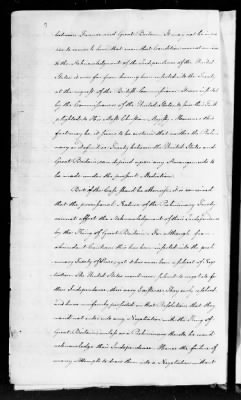 between France and Great Britain. It may not be amiss
to remark here that even that Condition annexed
to the Acknowledgment of the Independence of the United
States is so far from having been inserted in the Treaty
at the request of the British Commissioner. It was inserted
by the Commissioners of the United States to save the Faith
plighted to His Most Christian Majesty. However this
fact may be, it seems to be certain that neither the Preli-
minary or definitive Treaty between the United States and
Great Britain can depend upon any Arrangements to
be made under the present Mediation.
But if the Case should be otherwise, it is conceived
that the provisional Nature of the Preliminary Treaty
cannot affect the Acknowledgment of their Independence
by the King of Great Britain. For although from
abundant Caution this has been inserted into the preli-
minary Treaty of Peace, yet it has never been a subject of Nego-
tiation. The United States would never submit to negotiate for
their Independence
and have uniformly persisted in that Resolution that they
would not enter into any Negotiation with the King of
Great Britain unless as a Preliminary thereto, he would
acknowledge their Independence. Hence the failure of
many attempts to draw them into a Negotiation without